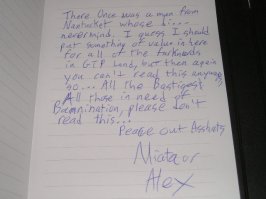 There Once was a man from
Nantucket whose d....
nevermind. I guess I should
put something of value in here
for all of the
in GTP Land, but then again
you can't read this anyway
so... All the
All those in need of
please don't
read this...
Peace out Asshats
or
Alex